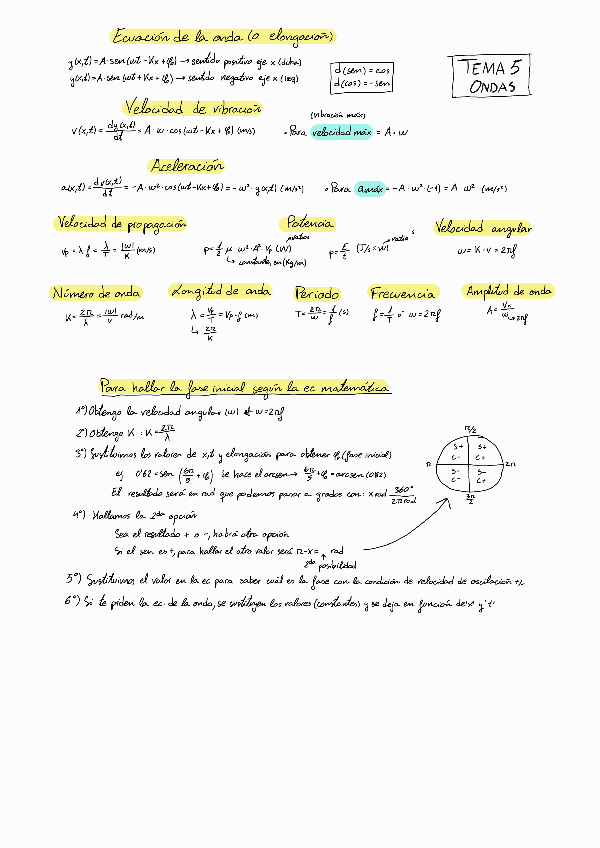 Ecuación de la onda (o elongación)
y(x,t) = A·sen(ωt - Kx + φ₀) → sentido positivo eje x (dcha)
y(x,t) = A·sen(ωt + Kx + φ₀) → sentido negativo eje x (izq)
d(sen) = cos
d(cos) = -sen
TEMA 5
ONDAS
Velocidad de vibración
v(x,t) = dy(x,t)/dt = A·ω·cos(ωt - Kx + φ₀) (m/s)
(vibración máx)
• Para velocidad máx = A·ω
Aceleración
a(x,t) = dv(x,t)/dt = -A·ω²·sen(ωt - Kx + φ₀) = -ω²·y(x,t) (m/s²)
• Para amáx = -A·ω²·(-1) = A·ω² (m/s²)
Velocidad de propagación
vp = λ·f = λ/T = |ω|/K (m/s)
Potencia
P = 1/2 μ·ω²·A²·vp (W)
watios
↳ constante, en (Kg/m)
P = E/t (J/s = W) → watios
Velocidad angular
ω = K·v = 2πf
Número de onda
K = 2π/λ = |ω|/v rad/m
Longitud de onda
↳ 2π/K
Período
T = 2π/ω = 1/f (s)
Frecuencia
f = 1/T o ω = 2πf
Amplitud de onda
→ 2πf
Para hallar la fase inicial según la ec matemática
1º) Obtengo la velocidad angular (ω) ω = 2πf
2º) Obtengo K : K = 2π/λ
3º) Sustituimos los valores de x,t y elongación para obtener φ₀ (fase inicial)
ej 0'82 = sen (6π/5 + φ₀) Se hace el arcsen → 6π/5 + φ₀ = arcsen (0'82)
El resultado será en rad que podemos pasar a grados con: x rad 360°/2π rad
4º) Hallamos la 2da opción
Sea el resultado + o -, habrá otra opción
Si el sen es +, para hallar el otro valor será π - x = rad
2da posibilidad
π/2
S+ S+
C- C+
π
2π
S- S-
C- C+
3π/2
5º) Sustituimos el valor en la ec para saber cuál es la fase con la condición de velocidad de oscilación +/-
6º) Si te piden la ec. de la onda, se sustituyen los valores (constantes) y se deja en función de 'x' y 't'